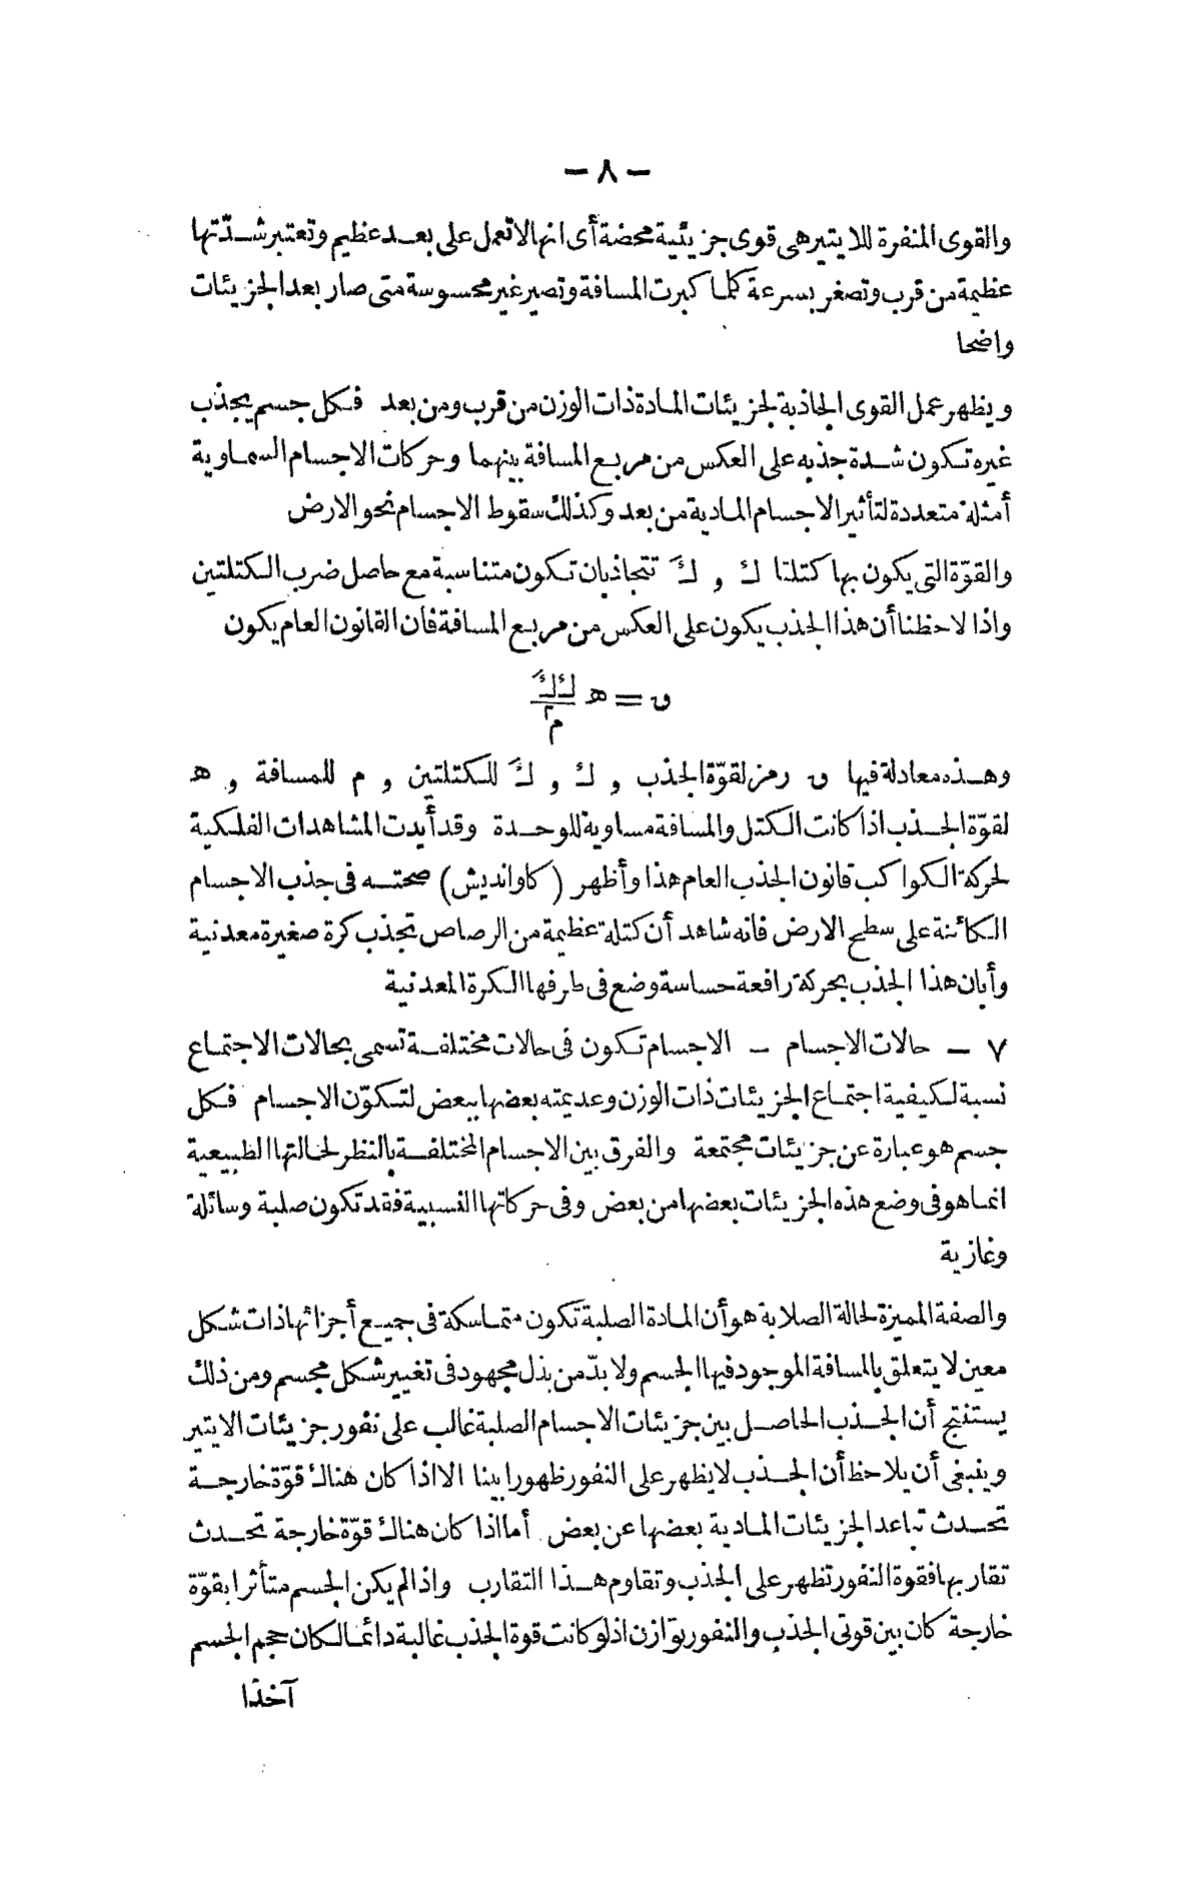 — ٨ —
والقوى المنفرة للايتير هى قوى جزيئية محضة أى انها لا تعمل على بعد عظيم وتعتبر شدّتها
عظيمة من قرب وتصغر بسرعة كلما كبرت المسافة وتصير غير محسوسة متى صار بعد الجزيئات
واضحا
ويظهر عمل القوى الجاذبة لجزيئات المادة ذات الوزن من قرب ومن بعد فكل جسم يجذب
غيره تكون شدة جذبه على العكس من مربع المسافة بينهما وحركات الاجسام السماوية
أمثلة متعددة لتأثير الاجسام المادية من بعد وكذلك سقوط الاجسام نحو الارض
والقوّة التى يكون بها كتلتا ك و كَ تتجاذبان تكون متناسبة مع حاصل ضرب الكتلتين
واذا لاحظنا أن هذا الجذب يكون على العكس من مربع المسافة فان القانون العام يكون
ں = ھ ك كَ / م٢
وهذه معادلة فيها ں رمز لقوّة الجذب و ك و كَ للكتلتين و م للمسافة و ھ
لقوّة الجذب اذا كانت الكتل والمسافة مساوية للوحدة وقد أيدت المشاهدات الفلكية
لحركة الكواكب قانون الجذب العام هذا وأظهر (كاوانديش) صحته فى جذب الاجسام
الكائنة على سطح الارض فانه شاهد أن كتلة عظيمة من الرصاص تجذب كرة صغيرة معدنية
وأبان هذا الجذب بحركة رافعة حساسة وضع فى طرفها الكرة المعدنية
٧ — حالات الاجسام — الاجسام تكون فى حالات مختلفة تسمى بحالات الاجتماع
نسبة لكيفية اجتماع الجزيئات ذات الوزن وعديمته بعضها ببعض لتكوّن الاجسام فكل
جسم هو عبارة عن جزيئات مجتمعة والفرق بين الاجسام المختلفة بالنظر لحالتها الطبيعية
انما هو فى وضع هذه الجزيئات بعضها من بعض وفى حركاتها النسبية فقد تكون صلبة وسائلة
وغازية
والصفة المميزة لحالة الصلابة هو أن المادة الصلبة تكون متماسكة فى جميع أجزائها ذات شكل
معين لا يتعلق بالمسافة الموجود فيها الجسم ولا بدّ من بذل مجهود فى تغيير شكل مجسم ومن ذلك
يستنتج أن الجذب الحاصل بين جزيئات الاجسام الصلبة غالب على نفور جزيئات الايتير
وينبغى أن يلاحظ أن الجذب لا يظهر على النفور ظهورا بينا الا اذا كان هناك قوّة خارجة
تحدث تباعد الجزيئات المادية بعضها عن بعض أما اذا كان هناك قوّة خارجة تحدث
تقاربها فقوة النفور تظهر على الجذب وتقاوم هذا التقارب واذا لم يكن الجسم متأثرا بقوّة
خارجة كان بين قوتى الجذب والنفور توازن اذ لو كانت قوة الجذب غالبة دائما لكان حجم الجسم
آخذا